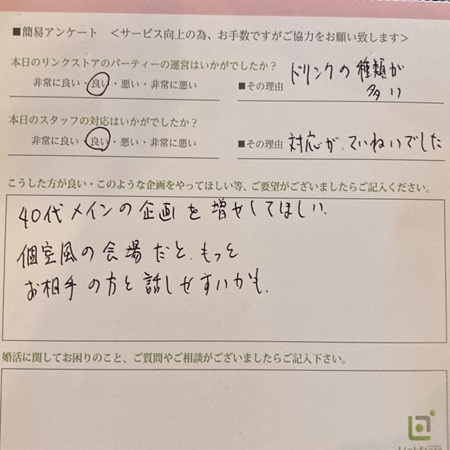 ■簡易アンケート ＜サービス向上の為、お手数ですがご協力をお願い致します＞
本日のリンクストアのパーティーの運営はいかがでしたか？
ドリンクの種類が
非常に良い・良い・悪い・非常に悪い ■その理由 多い
本日のスタッフの対応はいかがでしたか？
非常に良い・良い・悪い・非常に悪い ■その理由 対応が、ていねいでした
こうした方が良い・このような企画をやってほしい等、ご要望がございましたらご記入ください。
40代メインの企画を増やしてほしい、
個室風の会場だと、もっと
お相手の方と話しやすいかも、
婚活に関してお困りのこと、ご質問やご相談がございましたらご記入下さい。
LinkStore